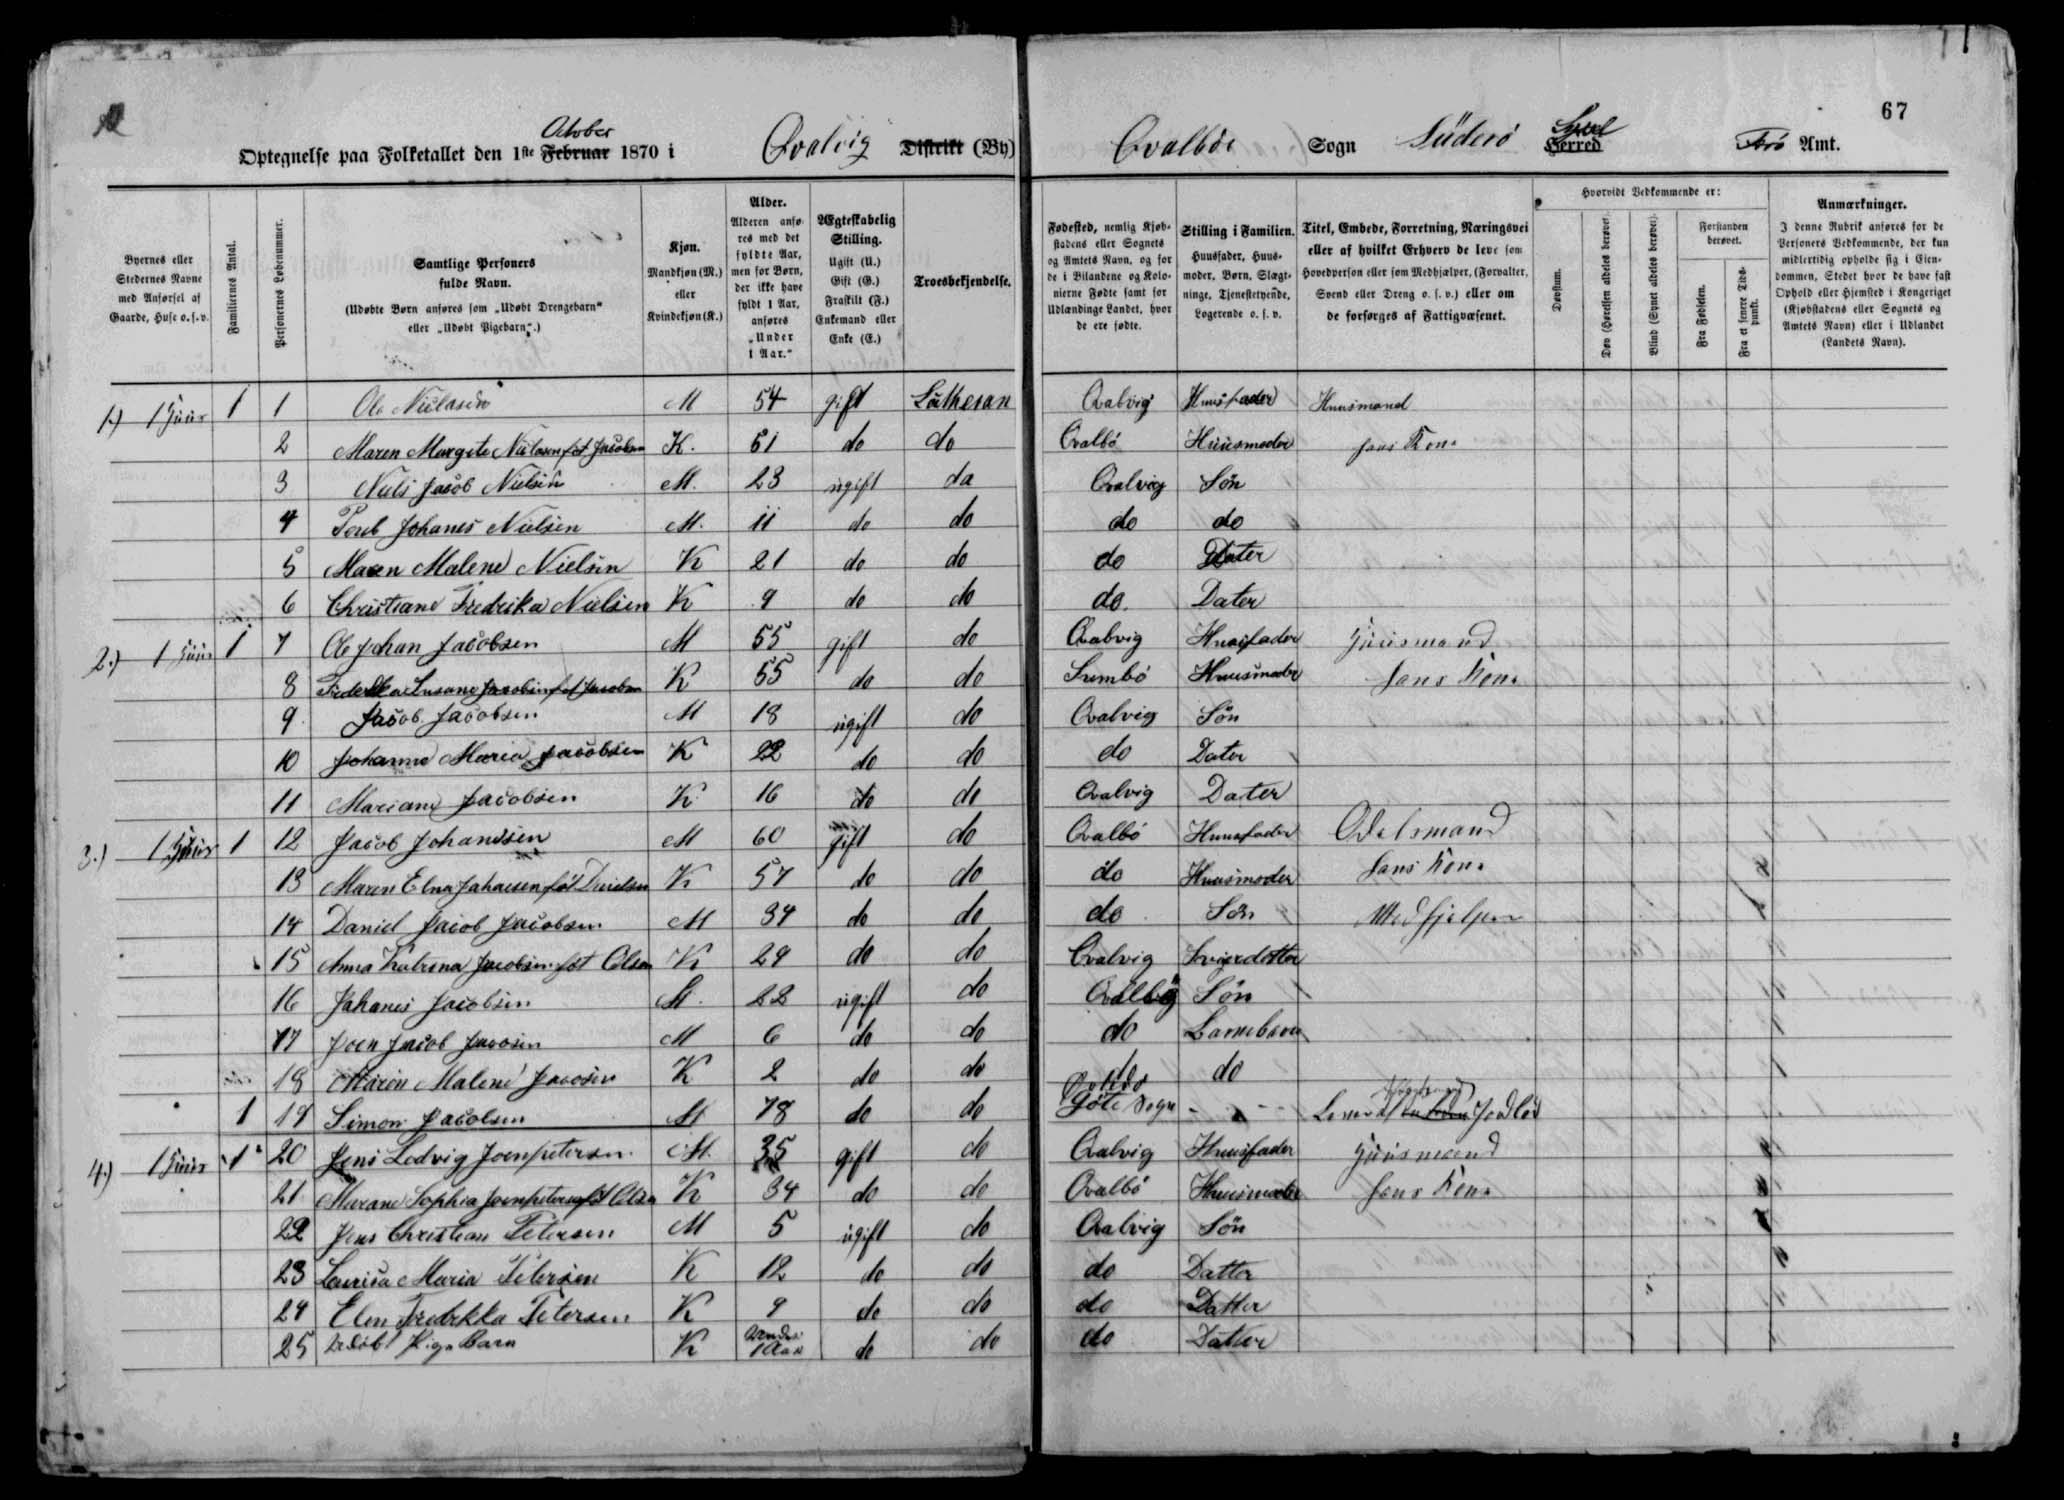 67
October
Optegnelse paa Folketallet den 1ste Februar 1870 i Qvalvig Distrikt (By) Qvalböe Sogn Süderö Herred Syssel Færö Amt.
Byernes eller Stedernes Navne med Anførsel af Gaarde, Huse o. s. v.
Familiernes Antal.
Personernes Løbenummer.
Samtlige Personers fulde Navn.
(Udøbte Børn anføres som „Udøbt Drengebarn“ eller „Udøbt Pigebarn“.)
Kjøn.
Mandkjøn (M.) eller Kvindekjøn (K.)
Alder.
Alderen anføres med det fyldte Aar, men for Børn, der ikke have fyldt 1 Aar, anføres „Under 1 Aar.“
Ægteskabelig Stilling.
Ugift (U.) Gift (G.) Fraskilt (F.) Enkemand eller Enke (E.)
Troesbekjendelse.
Fødested, nemlig Kjøbstadens eller Sognets og Amtets Navn, og for de i Bilandene og Kolonierne Fødte samt for Udlændinge Landet, hvor de ere fødte.
Stilling i Familien.
Huusfader, Huusmoder, Børn, Slægtninge, Tjenestetyende, Logerende o. s. v.
Titel, Embede, Forretning, Næringsvei eller af hvilket Erhverv de leve som Hovedperson eller som Medhjælper, (Forvalter, Svend eller Dreng o. s. v.) eller om de forsørges af Fattigvæsenet.
Hvorvidt Vedkommende er:
Døvstum.
Døv (Hørelsen aldeles berøvet).
Blind (Synet aldeles berøvet).
Forstanden berøvet.
Fra Fødselen.
Fra et senere Tidspunkt.
Anmærkninger.
I denne Rubrik anføres for de Personers Vedkommende, der kun midlertidig opholde sig i Eiendommen, Stedet hvor de have fast Ophold eller Hjemsted i Kongeriget (Kjøbstadens eller Sognets og Amtets Navn) eller i Udlandet (Landets Navn).
1.) 1 Huus 1 1 Ole Nielasen M 54 gift Lutheran Qvalvig Huusfader Huusmand
2 Maren Margete Nielasen föt Jacobsen K. 51 do do Qvalbö Huusmoder hans Kone
3 Niels Jacob Nielsen M. 23 ugift do Qvalvig Sön
4 Johanes Nielsen M. 11 do do do do
5 Maren Malene Nielsen K 21 do do do Dater
6 Christiane Fredrika Nielsen K 9 do do do. Dater
2.) 1 Huus 1 7 Ole Johan Jacobsen M 55 gift do Qvalvig Huusfader Huusmand
8 Frederikka Susane Jacobsen föt Jacobsen K 55 do do Sumbö Huusmoder hans Kone
9 Jacob Jacobsen M 18 ugift do Qvalvig Sön
10 Johanne Maria Jacobsen K 22 do do do Dater
11 Mariane Jacobsen K 16 do do Qvalvig Dater
3.) 1 Huus 1 12 Jacob Johansen M 60 gift do Qvalbö Huusfader Odelsmand
13 Maren Elna Johansen föt K 57 do do do Huusmoder hans Kone
14 Daniel Jacob Jacobsen M 34 do do do Sön Medhjelper
15 Anna Katrina Jacobsen föt Olsen K 29 do do Qvalvig Svigerdotter
16 Johanes Jacobsen M. 22 ugift do Sön
17 Joen Jacob M 6 do do do Barnebarn
18 Maren Malene K 2 do do do do
1 19 Simon Jacobsen M 78 do do Göte Sogn - - -
4.) 1 Huus 1 20 Jens Ledvig Joenpetersen M. 35 gift do Qvalvig Huusfader Huusmand
21 Mariane Sophia Joenpetersen föt Olsen K 34 do do Qvalbö Huusmoder hans Kone
22 Jens Christian Petersen M 5 ugift do Qvalvig Sön
23 Lauisa Maria Petersen K 12 do do do Datter
24 Elen Fredrikka Petersen K 9 do do do Datter
25 Udöbt Pige Barn K Under 1 Aar do do do Datter